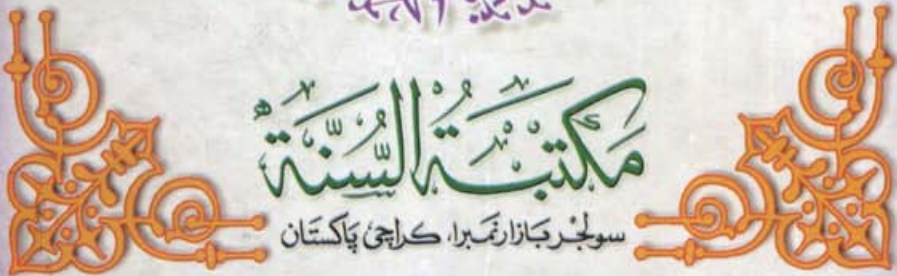 مكتبة السنة
سولجر بازار نمبر ا، کراچی پاکستان